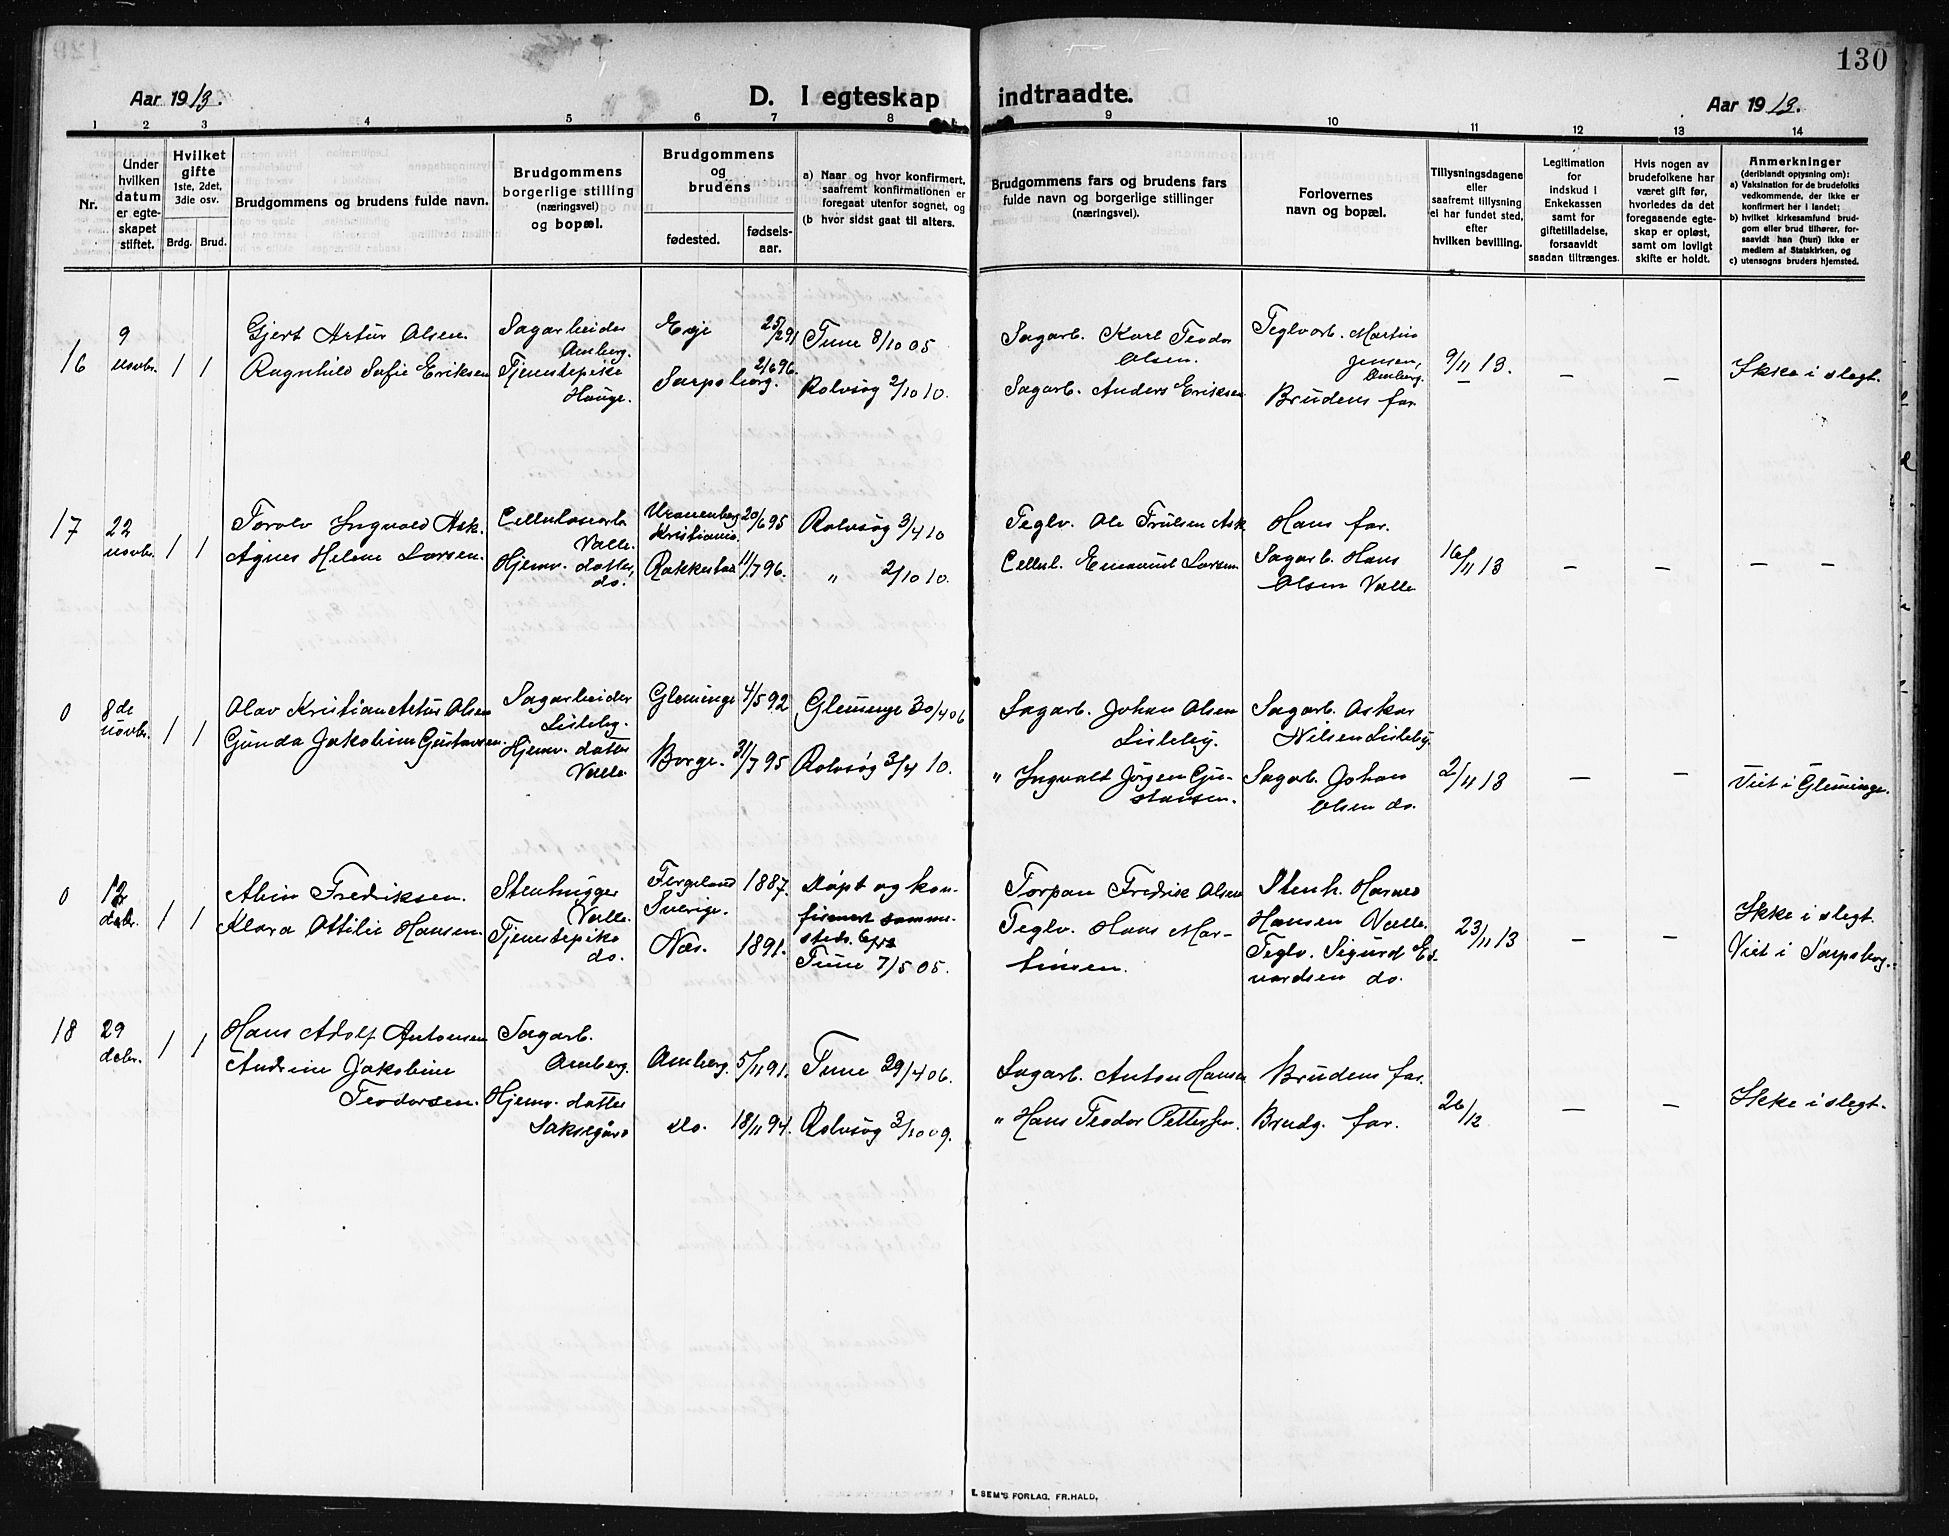 130
Aar 1913.
D. I egteskap indtraadte.
Aar 1913.
1 2 3 4 5 6 7 8 9 10 11 12 13 14
Nr.
Under hvilken datum er egteskapet stiftet.
Hvilket gifte 1ste, 2det, 3die osv.
Brdg. Brud.
Brudgommens og brudens fulde navn.
Brudgommens borgerlige stilling (næringsvei) og bopæl.
Brudgommens og brudens
fødested.
fødsels-aar.
a) Naar og hvor konfirmert, saafremt konfirmationen er foregaat utenfor sognet, og
(b hvor sidst gaat til alters.
Brudgommens fars og brudens fars fulde navn og borgerlige stillinger (næringsvei).
Forlovernes navn og bopæl.
Tillysningsdagene eller saafremt tillysning ei har fundet sted, efter hvilken bevilling.
Legitimation for indskud i Enkekassen samt for giftetilladelse, forsaavidt saadan tiltrænges.
Hvis nogen av brudefolkene har været gift før, hvorledes da det foregaaende egteskap er opløst, samt om lovligt skifte er holdt.
Anmerkninger (deriblandt oplysning om):
a) Vaksination for de brudefolks vedkommende, der ikke er konfirmert her i landet;
b) hvilket kirkesamfund brudgom eller brud tilhører, forsaavidt han (hun) ikke er medlem af Statskirken, og
c) utensogns bruders hjemsted.
16
9 novbr.
1 1
Gjert Artur Olsen.
Ragnhild Sofie Eriksen
Sagarbeider
Amberg.
Tjenestepike
Hauge.
Sarpsborg.
2/6 96.
Tune 8/10 05.
Rolvsøg 2/10 10.
Sagarb. Karl Teodor
Olsen.
Sagarb. Anders Eriksen
Teglvarb. Martin
Jensen,
Amberg.
Brudens far
9/11 13.
— —
Ikke i slegt.
17
22 novbr.
1 1
Torolv Ingvald Ask.
Agnes Helene Larsen.
Valle.
Hjemv. datter,
do.
Uranienborg
Kristiania.
20/6 95
Rakkestad 11/7 96.
Rolvsøg 3/4 10
" 2/10 10.
Teglv. Ole Trulsen Ask
Cellul. Emanuel Larsen
Hans far.
Sagarb. Hans
Olsen Valle
16/11 13
— — — —
0
8de novbr.
1 1
Olav Kristian Artur Olsen
Gunda Jakobine Gustavsen.
Sagarbeider
Lisleby.
Hjemv. datter
Valle.
Glemminge 4/5 92
Borge. 31/7 95
Glemminge 30/4 06
Rolvsøg 3/4 10.
Sagarb. Johan Olsen
Lisleby.
" Ingvalt Jørgen Gu-
stavsen.
Sagarb. Askar
Nilsen Lisleby.
Sagarb. Johan
Olsen do.
2/11 13
— —
Viet i Glemminge.
0
debr.
1 1
Alvin Fredriksen.
Klara Ottilie Hansen.
Stenhugger
Valle.
Tjenestepike
do.
Sverige.
1887.
Næs. 1891.
Døpt og kon-
firmert samme-
steds.
Tune 7/5 05.
Torpar Fredrik Olsen
Teglv. Hans Mar-
tinsen.
Stenh.
Hansen Valle.
Teglv. Sigurd Ed-
vardsen do.
23/11 13
— —
Ikke i slegt.
Viet i Sarpsborg.
18
29 debr.
1 1
Hans Adolf Antonsen
Andrine Jakobine
Teodorsen.
Sagarb.
Amberg.
Hjemv. datter
Saksegård
Amberg. 5/11 91.
do. 18/11 94.
Tune 29/4 06.
Rolvsøg 3/10 09.
Sagarb. Anton Hansen
" Hans Teodor Pettersen
Brudens far.
Brudg. far.
26/12
— —
Ikke i slegt.
E. SEM'S FORLAG, FR.HALD.